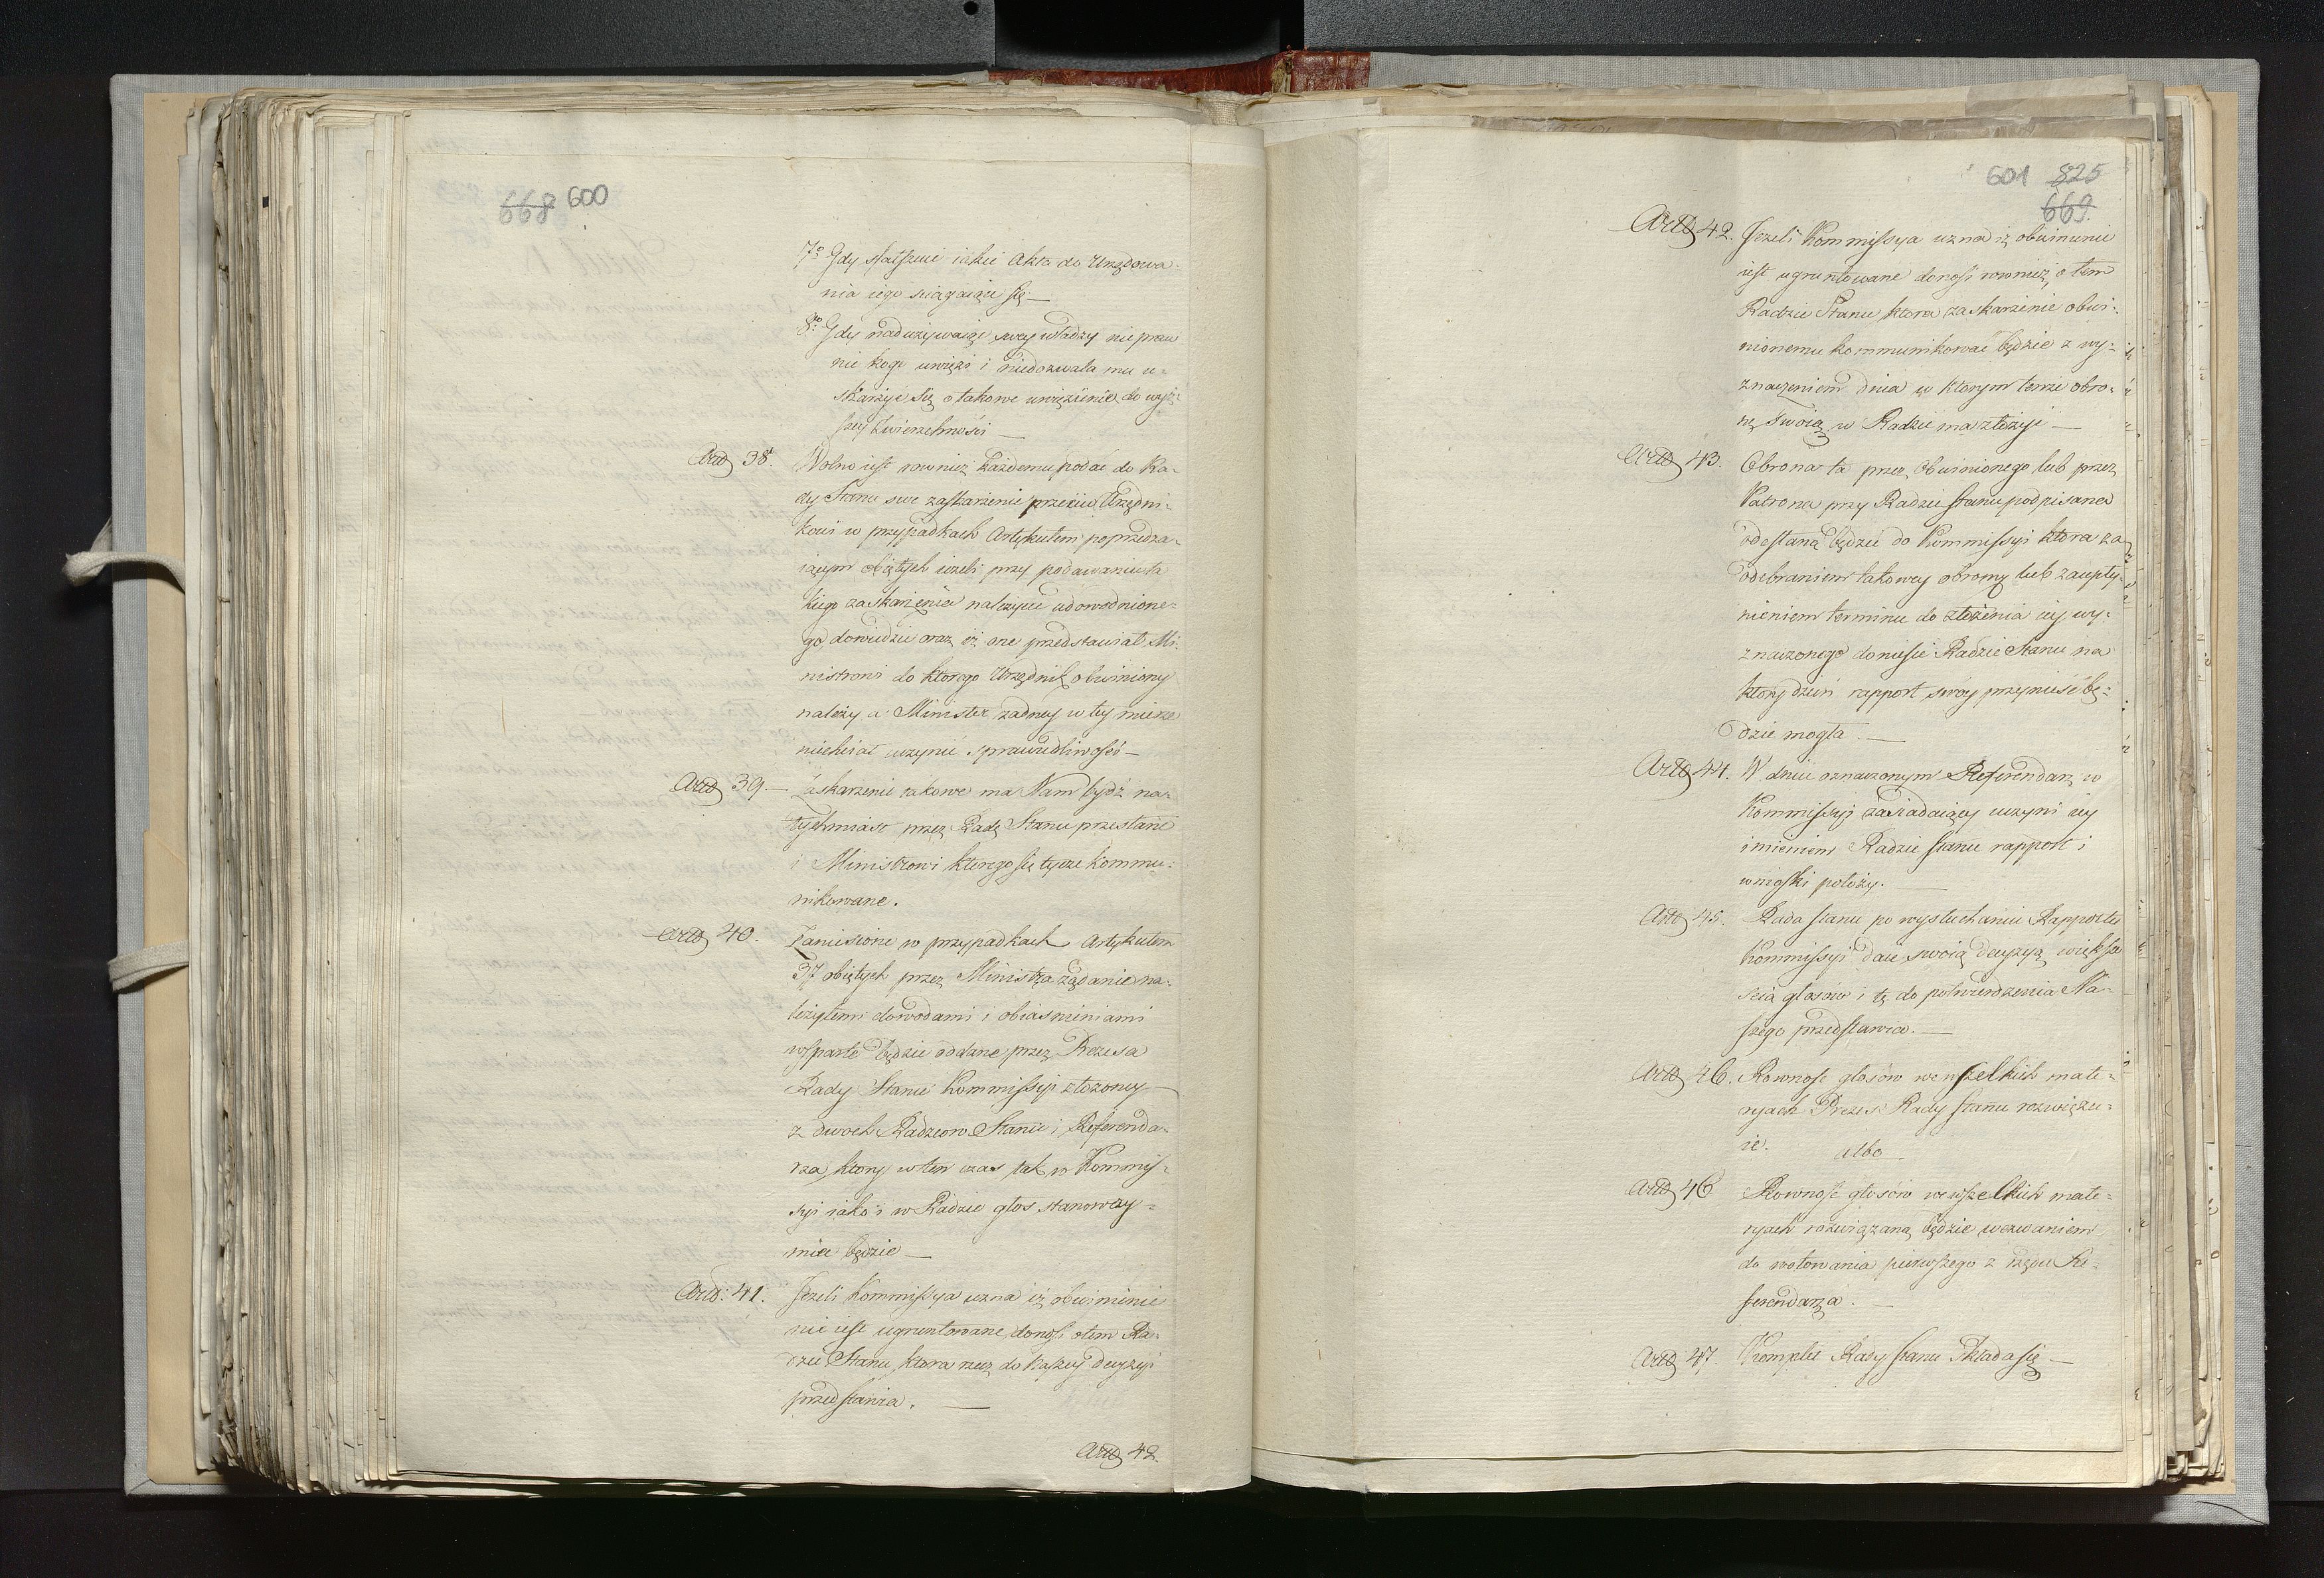 668 600
7º Gdy sfałszuie iakie Akta do Urzędowa-
nia iego sciągaiące się —
8º Gdy nadużywaiąc swey władzy niepraw
nie kogo uwięzi i niedozwala mu u-
skarżyć się o takowe uwięzienie do wyż-
szey Zwierzchności —
Artð 38. Wolno iest rownież każdemu podać do Ra-
dy Stanu swe zaskarżenie przeciw Urzędni-
kowi w przypadkach Artykułem poprzedza-
iącym obiętych ieżeli przy podawaniu ta
kiego zaskarżenia należycie udowodnione-
go, dowiedzie oraz iż one przedstawiał Mi-
nistrowi do ktorego Urzędnik obwiniony
należy a Minister żadney w tey mierze
niechciał uczynić sprawiedliwości —
Artð 39 — Zaskarżenie takowe ma Nam bydź na-
tychmiast przez Radę Stanu przesłane
i Ministrowi ktorego się tycze kommu-
nikowane.
Artð 40. Zaniesione w przypadkach Artykułem
37 obiętych przez Ministra żądanie na-
leżytemi dowodami i obiaśnieniami
wsparte będzie oddane przez Prezesa
Rady Stanu Kommissyi złożoney
z dwoch Radzcow Stanu i Referenda-
rza, ktory w ten czas tak w Kommis-
syi iako i w Radzie głos stanowczy
mieć będzie —
Artð: 41. Jeżeli Kommissya uzna iż obwinienie
nie iest ugruntowane, donosi o tem Ra-
dzie Stanu, ktora rzecz do Naszey decyzyi
przedstawia. —
Artð 42.
601 825
669.
Artð 42. Jeżeli Kommissya uzna iż obwinienie
iest ugruntowane donosi rownież o tem
Radzie Stanu, ktora zaskarżenie obwi-
nionemu kommunikować będzie z wy-
znaczeniem dnia w ktorym tenże obro-
nę swoią w Radzie ma złożyć —
Artð 43. Obrona ta przez Obwinionego lub przez
Patrona przy Radzie Stanu podpisana
odesłaną będzie do Kommissyi ktora za
odebraniem takowey obrony lub za upły-
nieniem terminu do złożenia iey wy-
znaczonego doniesie Radzie Stanu na
ktory dzień rapport swoy przynieść bę-
dzie mogła. —
Artð 44. W dniu oznaczonym Referendarz w
Kommissyi zasiadaiący uczyni iey
imieniem Radzie Stanu rapport i
wnioski położy. —
Artð 45. Rada Stanu po wysłuchaniu Rapportu
Kommissyi daie swoią decyzyą większo
ścią głosów i tę do potwierdzenia Na-
szego przedstawia. —
Artð 46. Rowność głosów we wszelkich mate-
ryach Prezes Rady Stanu rozwięzu-
ie.
albo
Artð 46 Rowność głosów we wszelkich mate-
ryach rozwiązaną będzie wezwaniem
do wotowania pierwszego z rzędu Re-
ferendarza. —
Artð 47. Komplet Rady Stanu składa się —